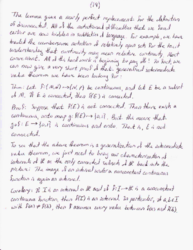 (18)
The lemma gives a nearly perfect replacement for the definition
of disconnected. All of the notational difficulties that we faced
earlier are now hidden in notation &
language. For example, we have
traded the cumbersome notation of relatively open sets for the
understanding that continuity now means relatively continuously
convenient. All of this hard work is beginning to pay off! In fact, we
can now give a very short proof of that generalized intermediate
value theorem we have been looking for:
Thm: Let F: (X,d) → (M,d) be continuous, and let E be a subset
of X. If E is connected, then F(E) is connected.
Proof: Suppose that F(E) is not connected. Then there exists a
continuous, onto map g: F(E) → {0,1}. But this means that
g∘F: E → {0,1} is continuous and onto. That is, E is not
connected.
To see that the above theorem is a generalization of the intermediate
value theorem, we just need to bring our characterization of
intervals of ℝ as the only connected subsets of ℝ back into the
picture: The image of an interval under a nonconstant continuous
function is again an interval.
Corollary: If I is an interval in ℝ and if F: I → ℝ is a nonconstant
continuous function, then F(I) is an interval. In particular, if a, b ∈ I
with F(a) ≠ F(b), then F assumes every value between F(a) and F(b).